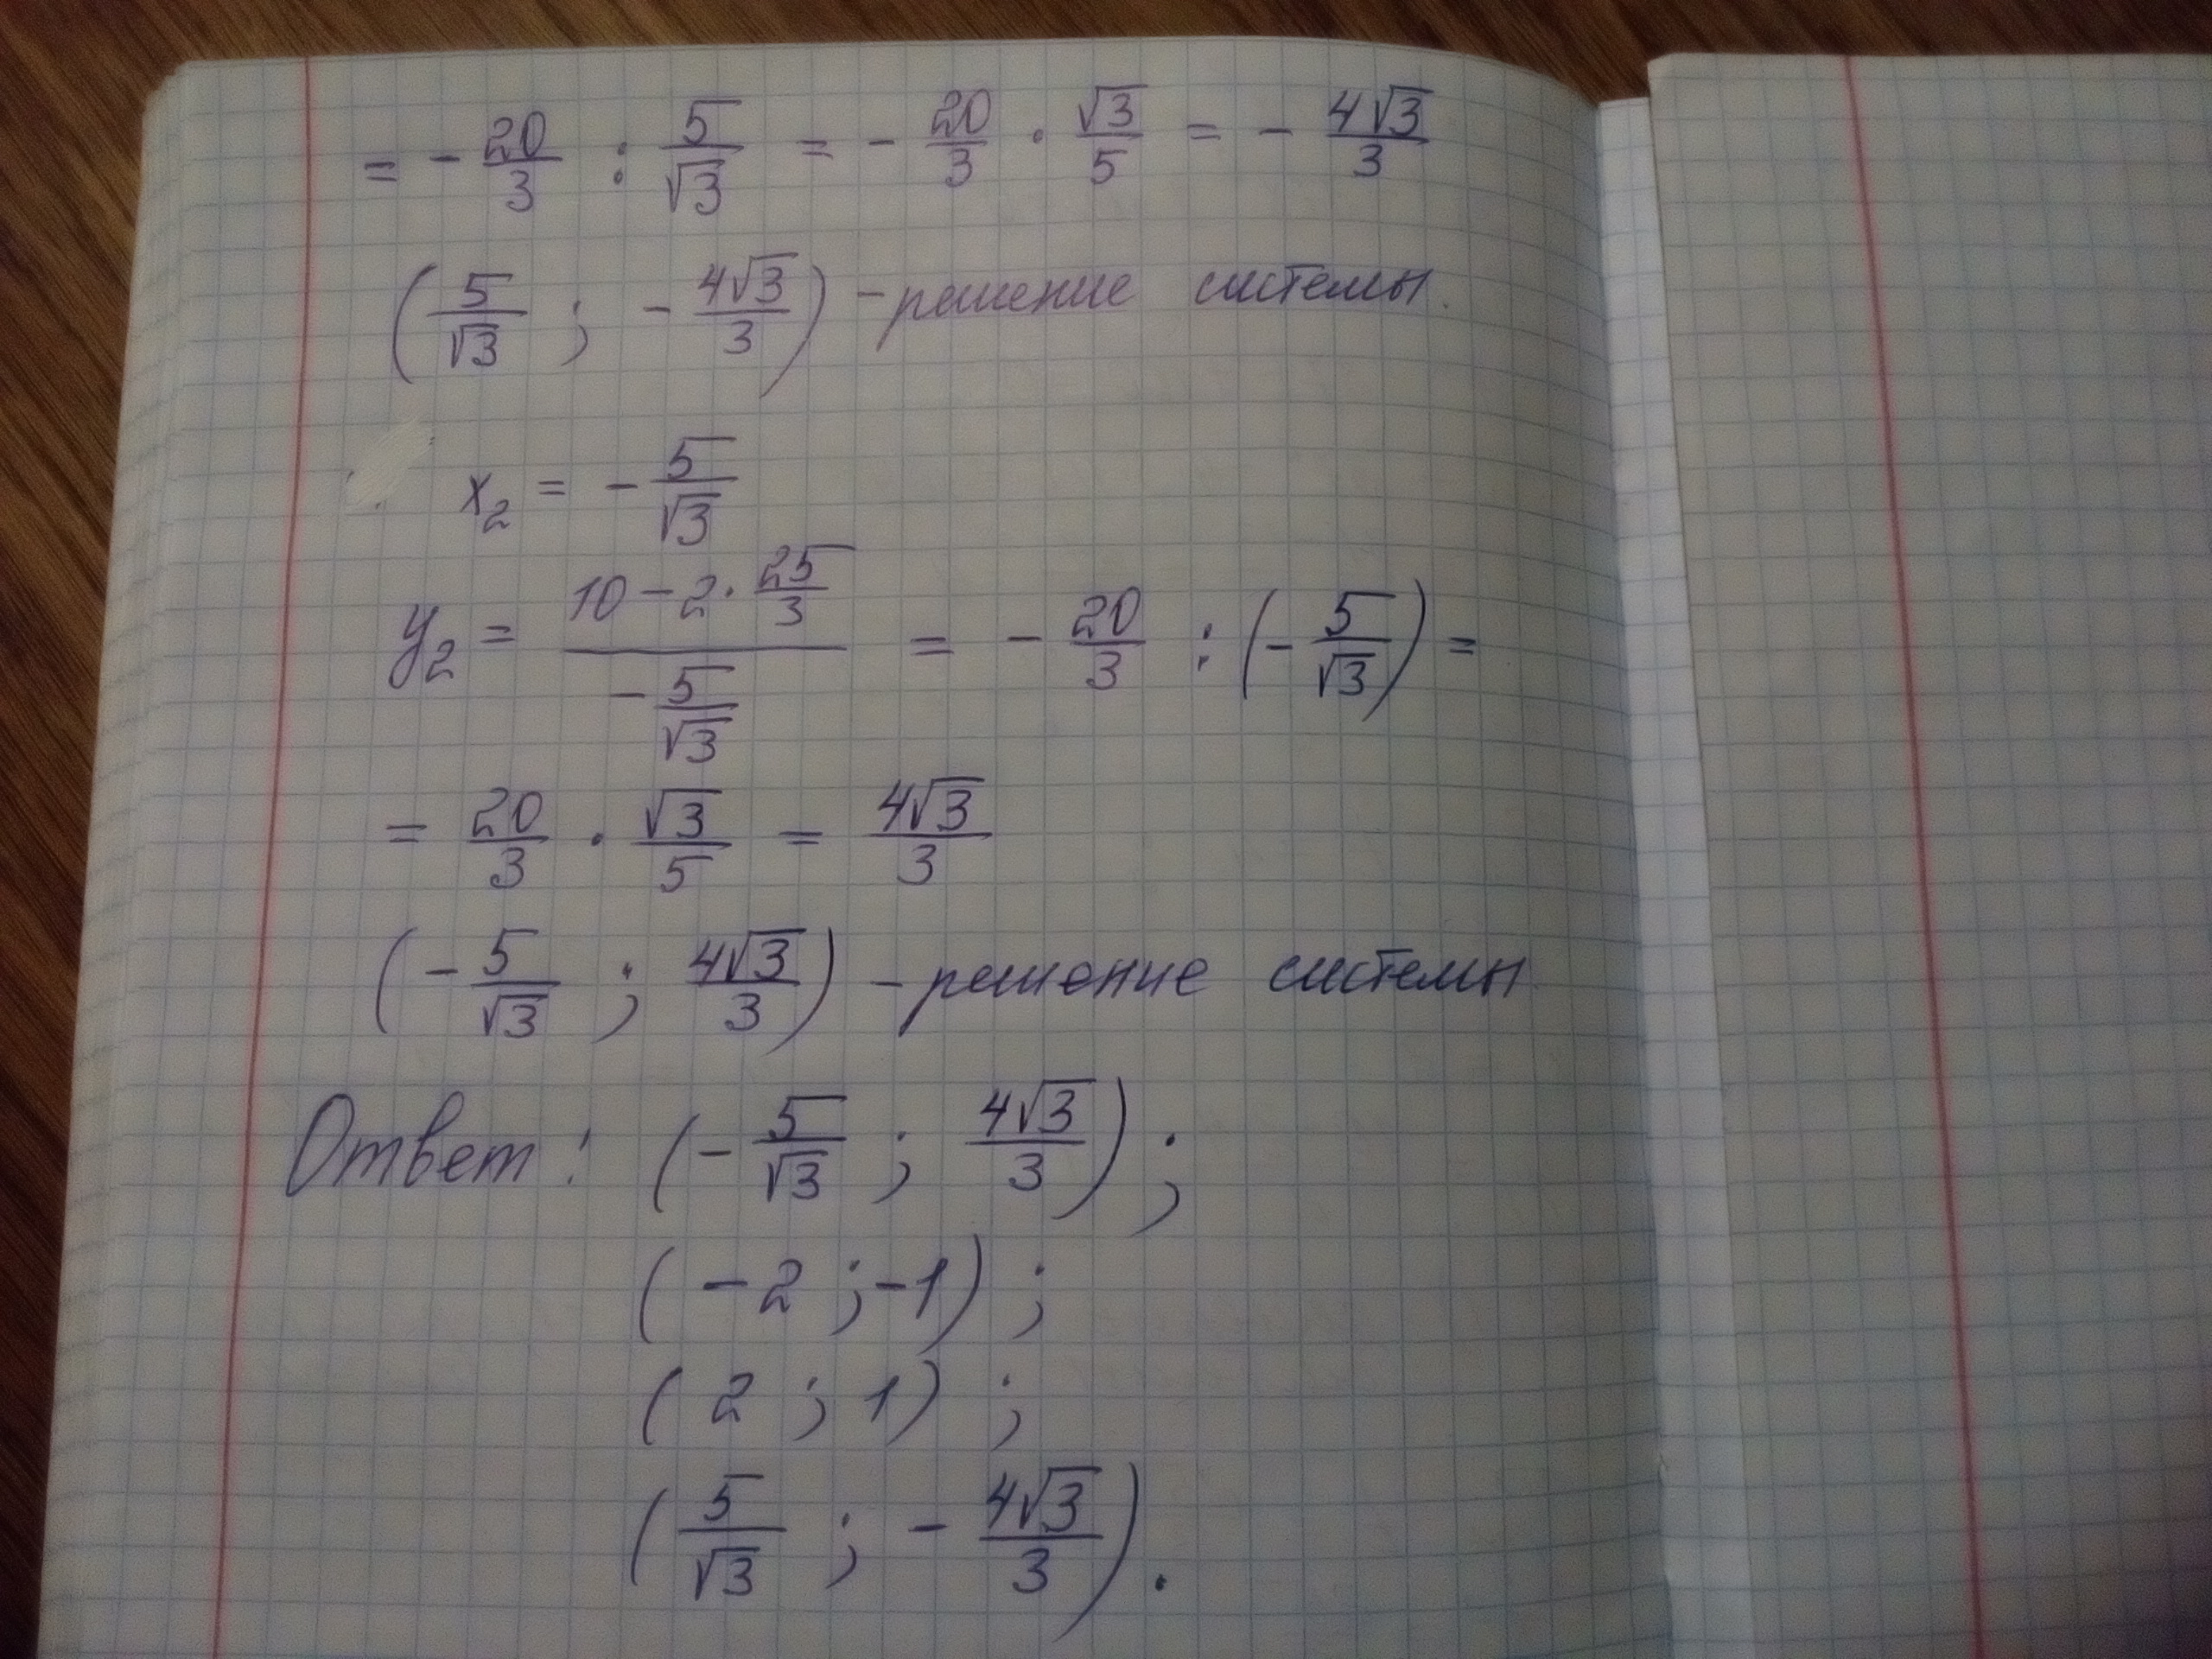 = - 20/3 : 5/√3 = - 20/3 · √3/5 = - 4√3/3
(5/√3 ; - 4√3/3) - решение системы.
x₂ = - 5/√3
y₂ = (10 - 2 · 25/3)/(- 5/√3) = - 20/3 : (- 5/√3) =
= 20/3 · √3/5 = 4√3/3
(- 5/√3 ; 4√3/3) - решение системы
Ответ: (- 5/√3 ; 4√3/3) ;
(-2 ; -1) ;
(2 ; 1) ;
(5/√3 ; - 4√3/3) .